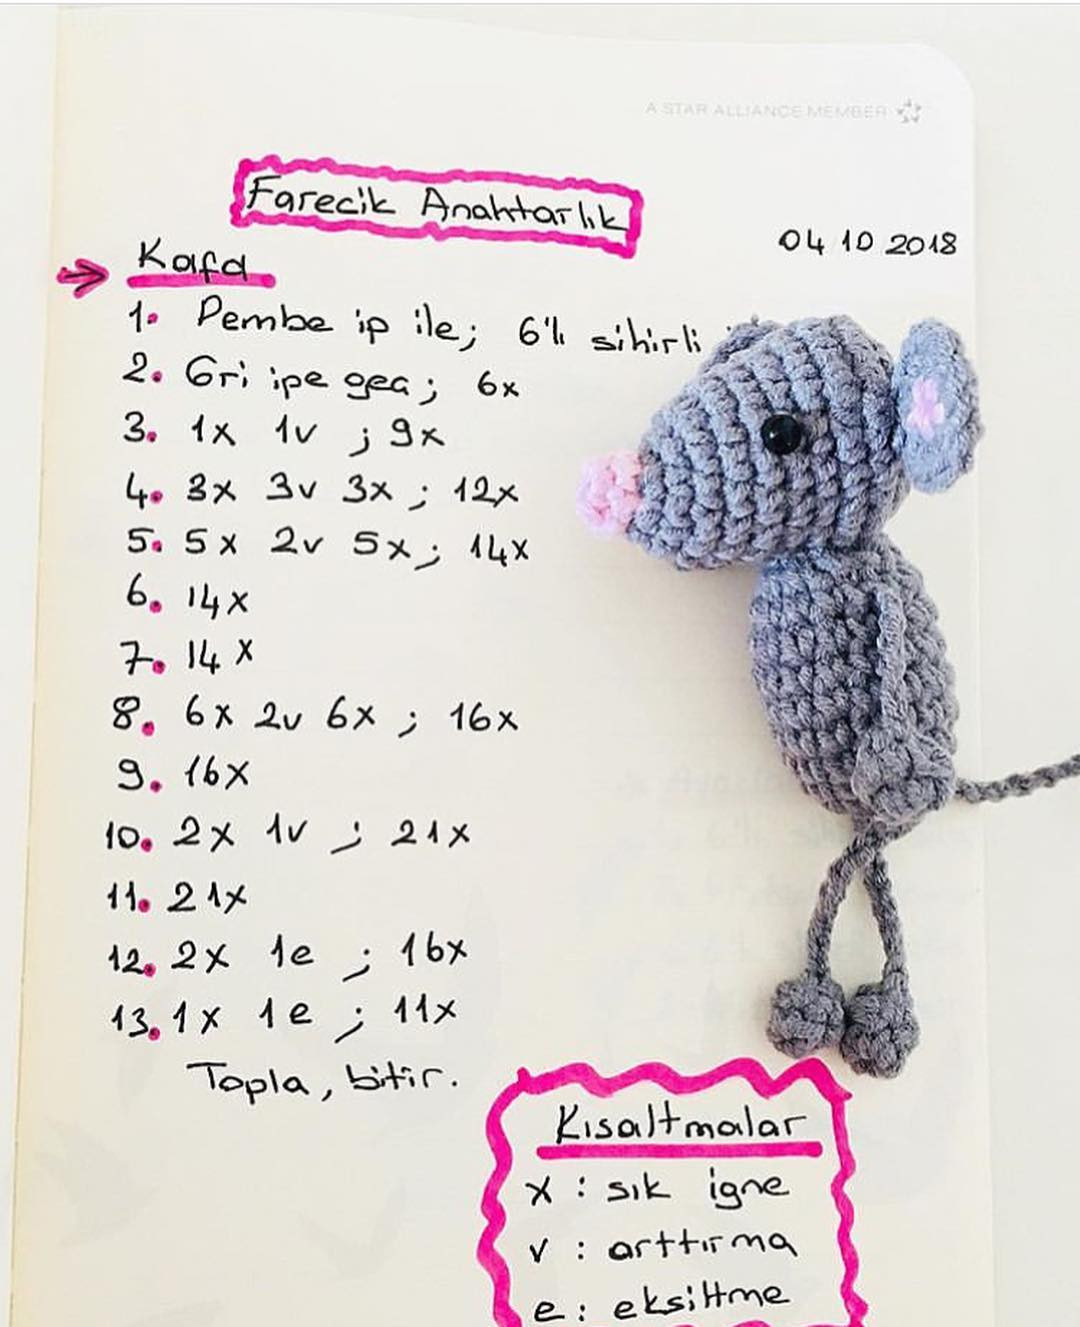 A STAR ALLIANCE MEMBER
Farecik Anahtarlık
04 10 2018
Kafa
1. Pembe ip ile; 6'lı sihirli
2. Gri ipe geç; 6x
3. 1x 1v ; 9x
4. 3x 3v 3x ; 12x
5. 5x 2v 5x ; 14x
6. 14x
7. 14x
8. 6x 2v 6x ; 16x
9. 16x
10. 2x 1v ; 21x
11. 21x
12. 2x 1e ; 16x
13. 1x 1e ; 11x
Topla, bitir.
Kısaltmalar
x : sık igne
v : arttırma
e : eksiltme